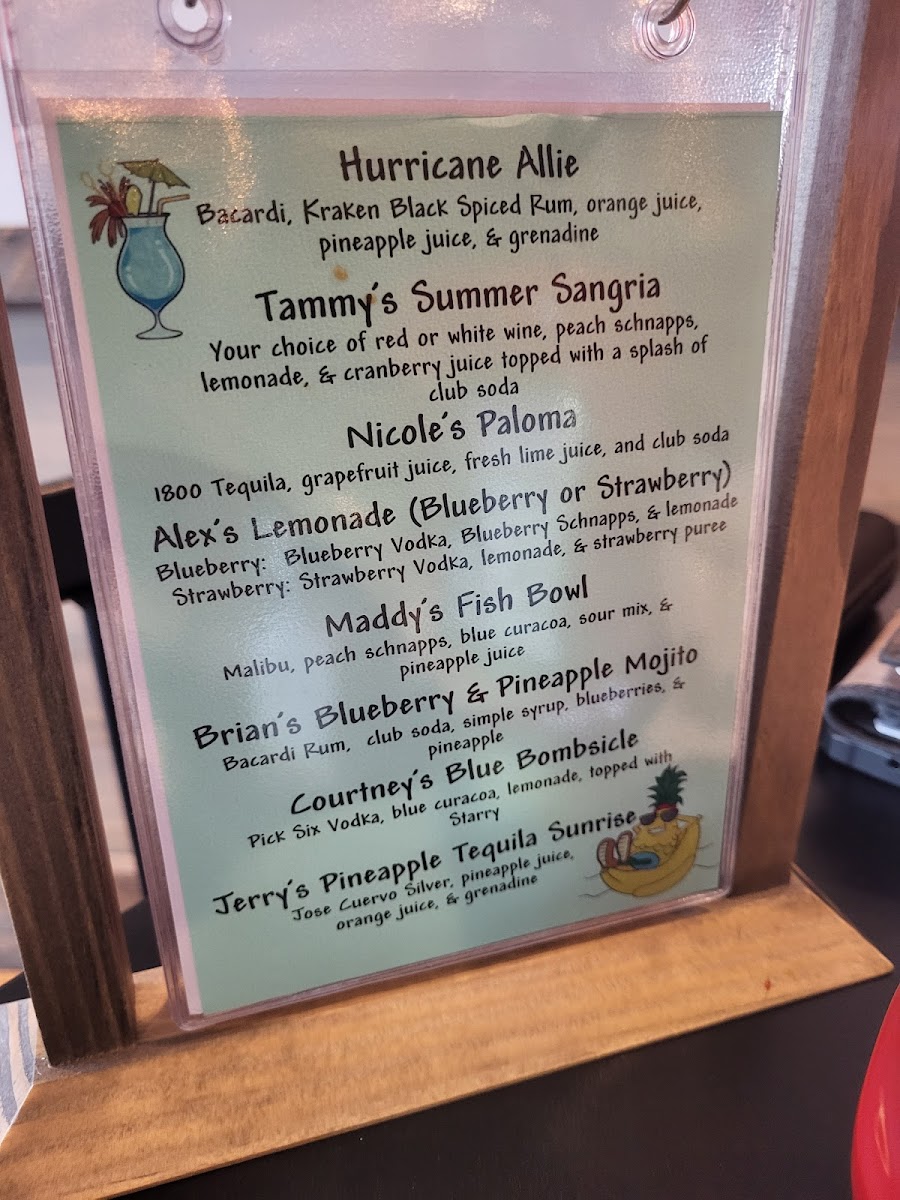 Hurricane Allie
Bacardi, Kraken Black Spiced Rum, orange juice,
pineapple juice, & grenadine
Tammy's Summer Sangria
Your choice of red or white wine, peach schnapps,
lemonade, & cranberry juice topped with a splash of
club soda
Nicole's Paloma
1800 Tequila, grapefruit juice, fresh lime juice, and club soda
Alex's Lemonade (Blueberry or Strawberry)
Blueberry: Blueberry Vodka, Blueberry Schnapps, & lemonade
Strawberry: Strawberry Vodka, lemonade, & strawberry puree
Maddy's Fish Bowl
Malibu, peach schnapps, blue curacoa, sour mix, &
pineapple juice
Brian's Blueberry & Pineapple Mojito
Bacardi Rum, club soda, simple syrup, blueberries, &
pineapple
Courtney's Blue Bombsicle
Pick Six Vodka, blue curacoa, lemonade, topped with
Starry
Jerry's Pineapple Tequila Sunrise
Jose Cuervo Silver, pineapple juice,
orange juice, & grenadine